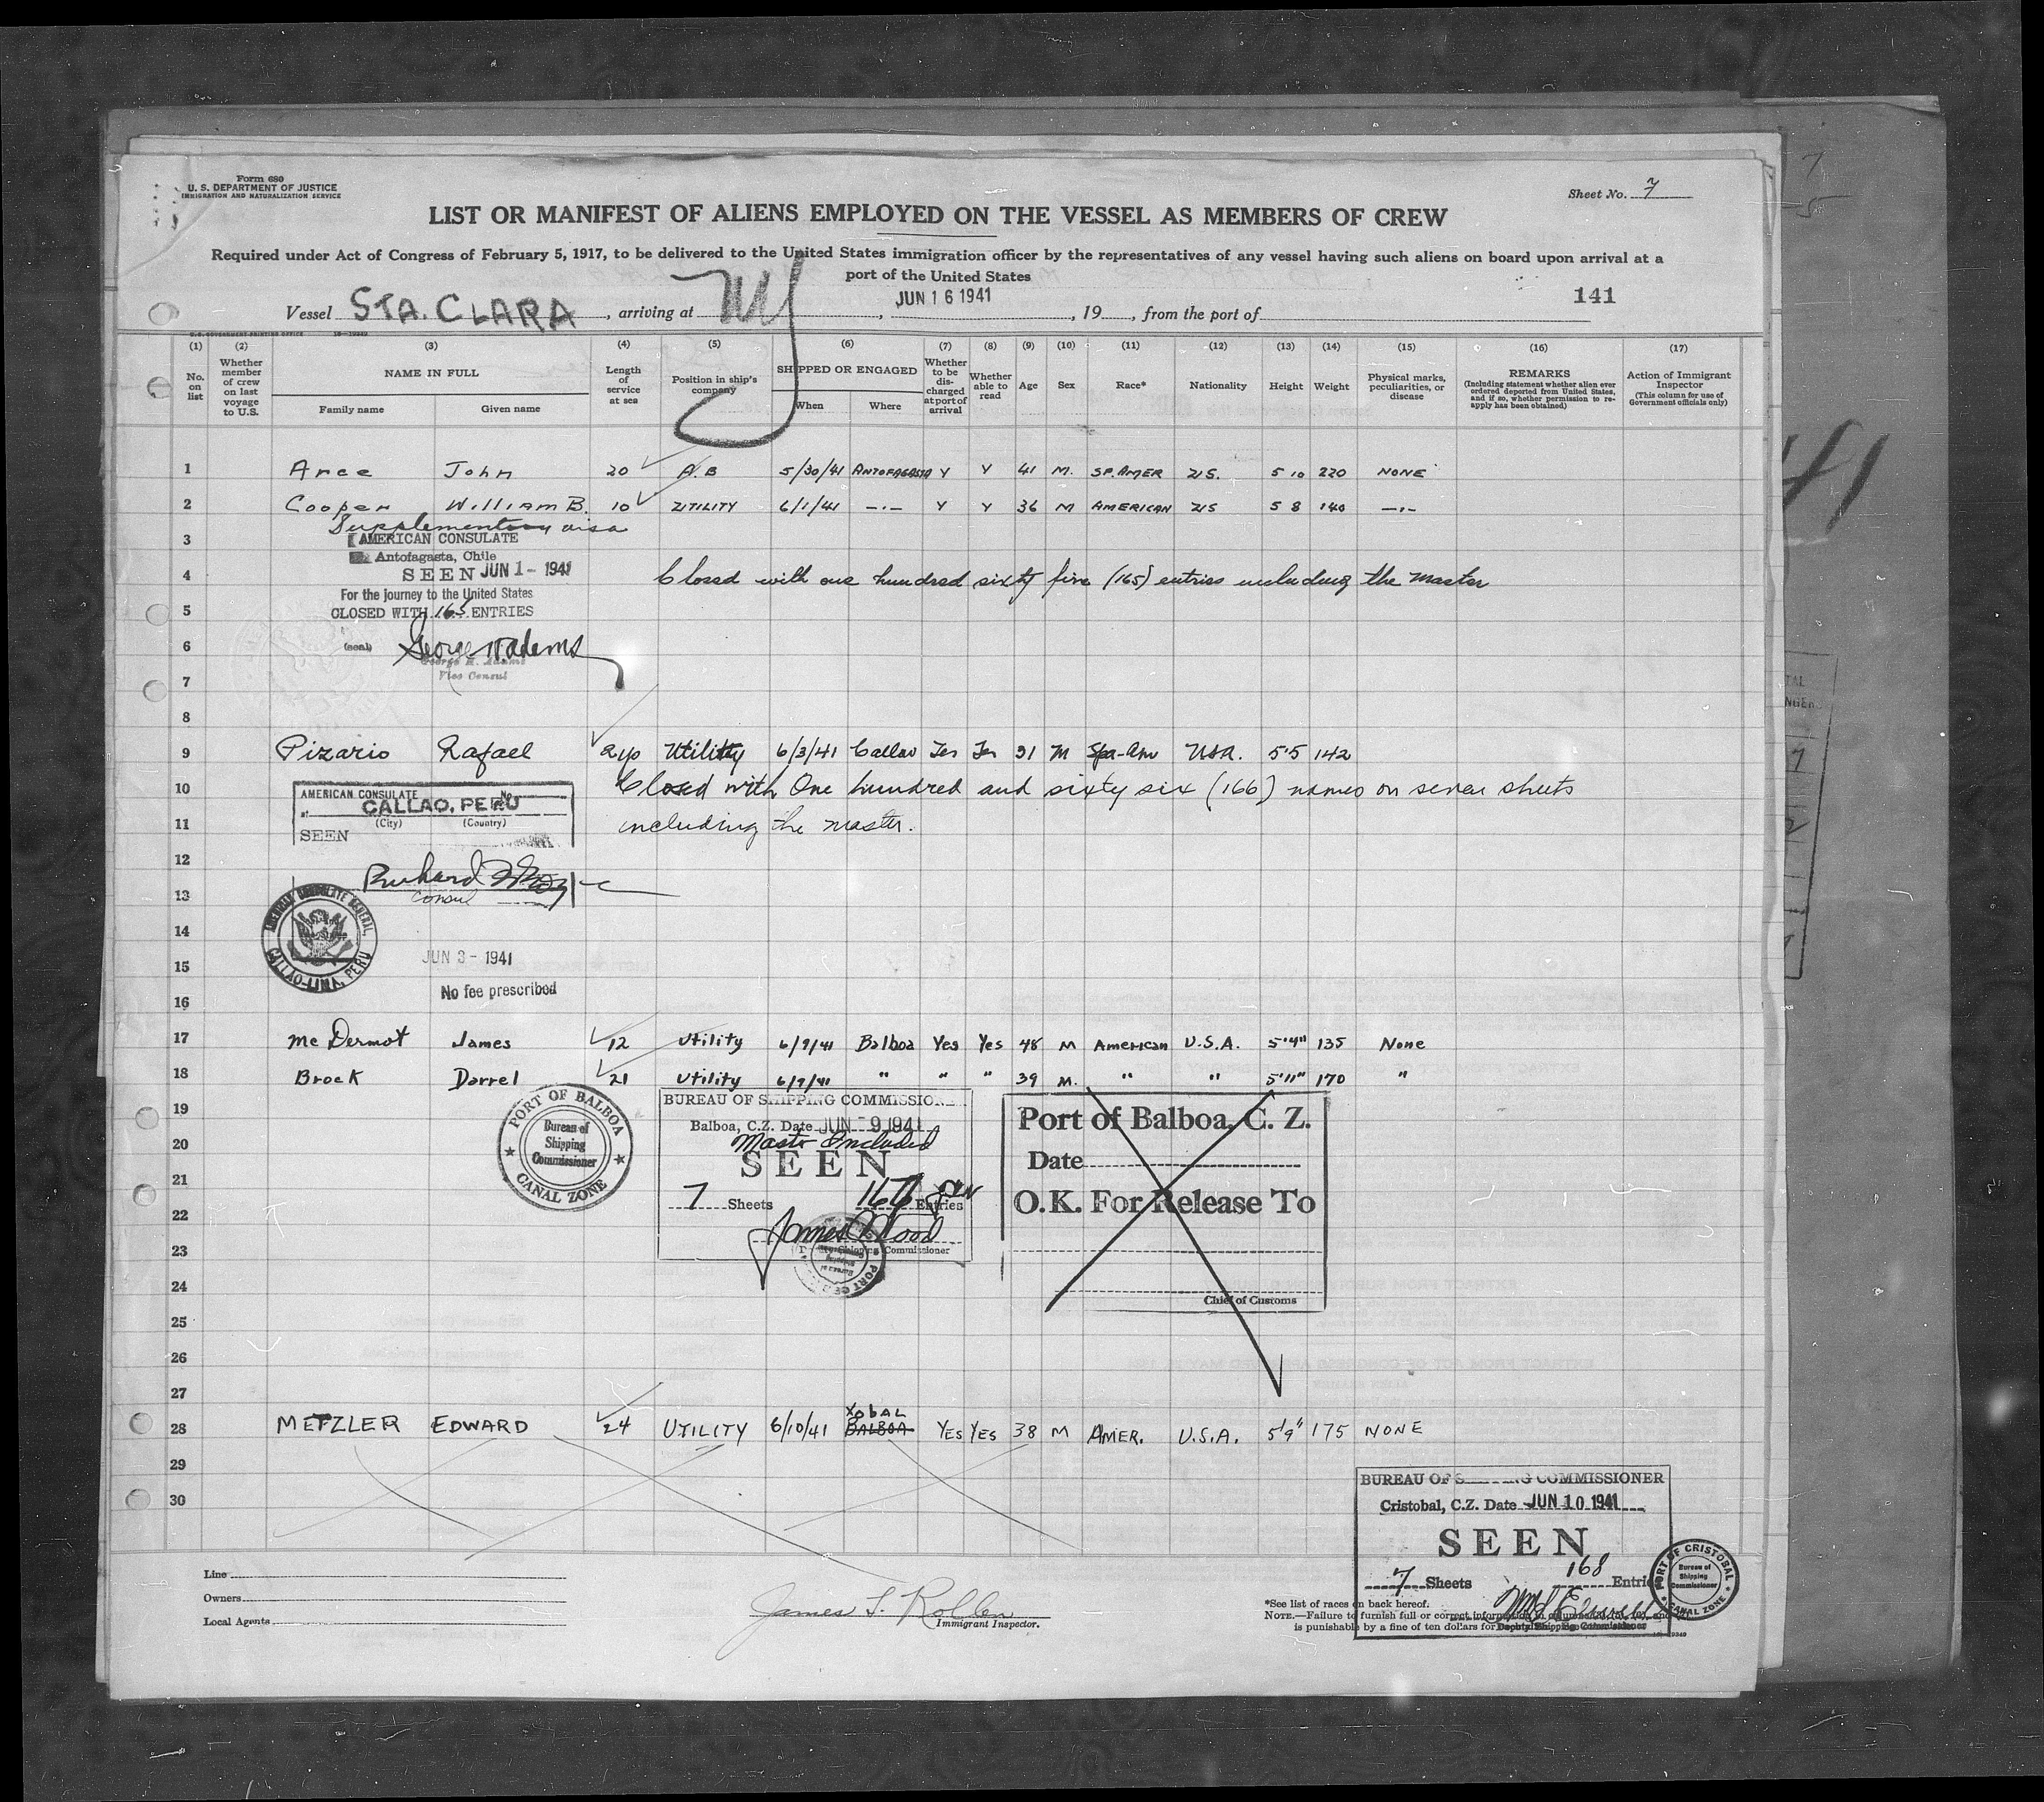 Form 680
U. S. DEPARTMENT OF JUSTICE
IMMIGRATION AND NATURALIZATION SERVICE
Sheet No. 7
LIST OR MANIFEST OF ALIENS EMPLOYED ON THE VESSEL AS MEMBERS OF CREW
Required under Act of Congress of February 5, 1917, to be delivered to the United States immigration officer by the representatives of any vessel having such aliens on board upon arrival at a
port of the United States
Vessel STA. CLARA, arriving at NY, JUN 16 1941, 19, from the port of
141
U.S. GOVERNMENT PRINTING OFFICE
(1) (2) (3) (4) (5) (6) (7) (8) (9) (10) (11) (12) (13) (14) (15) (16) (17)
No. on list
Whether member of crew on last voyage to U.S.
NAME IN FULL
Family name Given name
Length of service at sea
Position in ship's company
SHIPPED OR ENGAGED
When Where
Whether to be discharged at port of arrival
Whether able to read
Age Sex Race* Nationality Height Weight
Physical marks, peculiarities, or disease
REMARKS
(Including statement whether alien ever ordered deported from United States, and if so, whether permission to reapply has been obtained)
Action of Immigrant Inspector
(This column for use of Government officials only)
1 Arce John 20 A.B 5/30/41 ANTOFAGASTA Y Y 41 M. SP. AMER US. 5 10 220 NONE
2 Cooper William B. 10 UTILITY 6/1/41 -·- Y Y 36 M AMERICAN US 5 8 140 -·-
Supplementary visa
3 AMERICAN CONSULATE
Antofagasta, Chile
4 SEEN JUN 1 - 1941 Closed with one hundred sixty five (165) entries including the master
For the journey to the United States
5 CLOSED WITH 165 ENTRIES
6 (seal) George H Adams
George H. Adams
7 Vice Consul
8
9 Pizario Rafael 2yo Utility 6/3/41 Callao Yes Yes 31 M Spa-Am USA. 5'5 142
10 AMERICAN CONSULATE Closed with One hundred and sixty six (166) names on seven sheets
at CALLAO, PERU
(City) (Country)
11 SEEN including the master.
12
13 Consul
AMERICAN CONSULATE GENERAL, CALLAO-LIMA, PERU
14
15 JUN 3 - 1941
16 No fee prescribed
17 Mc Dermot James 12 Utility 6/9/41 Balboa Yes Yes 48 M American U.S.A. 5'4" 135 None
18 Brock Darrel 21 Utility 6/9/41 " " " 39 M. " " 5'11" 170 "
19 PORT OF BALBOA
Bureau of Shipping Commissioner
CANAL ZONE
BUREAU OF SHIPPING COMMISSIO
Balboa, C.Z. Date JUN 9 1941
20 Master Included
SEEN
21 7 Sheets Entries
22 James Wood
23 Shipping Commissioner
Port of Balboa, C. Z.
Date
O.K. For Release To
24 Chief of Customs
25
26
27
28 METZLER EDWARD 24 UTILITY 6/10/41 XobAL BALBOA YES YES 38 M AMER. U.S.A. 5'9" 175 NONE
29
30
BUREAU OF SHIPPING COMMISSIONER
Cristobal, C.Z. Date JUN 10 1941
SEEN
7 Sheets 168 Entries
PORT OF CRISTOBAL
Bureau of Shipping Commissioner
CANAL ZONE
Deputy Shipping Commissioner
Line
Owners
Local Agents
Immigrant Inspector.
*See list of races on back hereof.
NOTE.—Failure to furnish full or correct information in columns
is punishable by a fine of ten dollars for